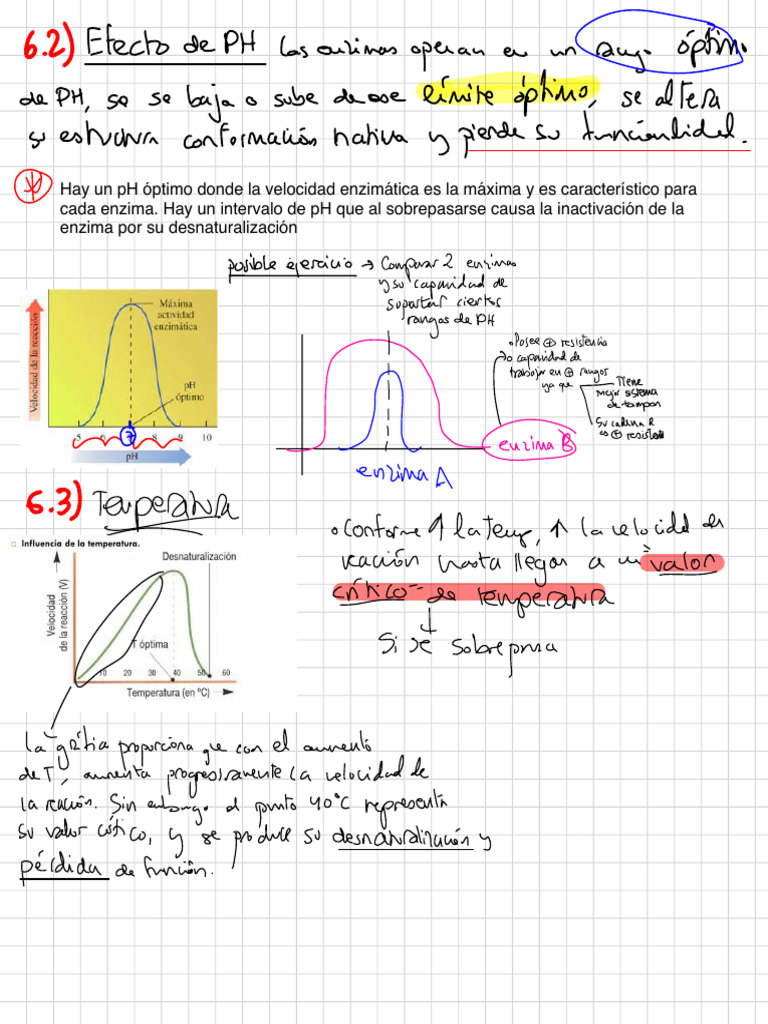 6.2) Efecto de PH Las enzimas operan en un rango óptimo
de PH, se se baja o sube de ese límite óptimo, se altera
su estructura conformación nativa y pierde su funcionalidad.
Hay un pH óptimo donde la velocidad enzimática es la máxima y es característico para
cada enzima. Hay un intervalo de pH que al sobrepasarse causa la inactivación de la
enzima por su desnaturalización
posible ejercicio → Comparar 2 enzimas
y su capacidad de
soportar ciertos
rangos de PH
Velocidad de la reacción
Máxima
actividad
enzimática
pH
óptimo
5 6 7 8 9 10
pH
• Posee ⊕ resistencia
o capacidad de
trabajar en ⊕ rangos
ya que
Tiene
mejor sistema
de tampon
Su cadena R
es ⊕ resistente
enzima B
enzima A
6.3) Temperatura
Influencia de la temperatura.
Desnaturalización
Velocidad
de la reacción (V)
T óptima
10 20 30 40 50 60
Temperatura (en ºC)
• Conforme ↑ la temp, ↑ la velocidad de
reacción hasta llegar a un valor
crítico de temperatura
↓
Si se sobrepasa
La gráfica proporciona que con el aumento
de T, aumenta progresivamente la velocidad de
la reacción. Sin embargo el punto 40°C representa
su valor crítico, y se produce su desnaturalización y
pérdida de función.